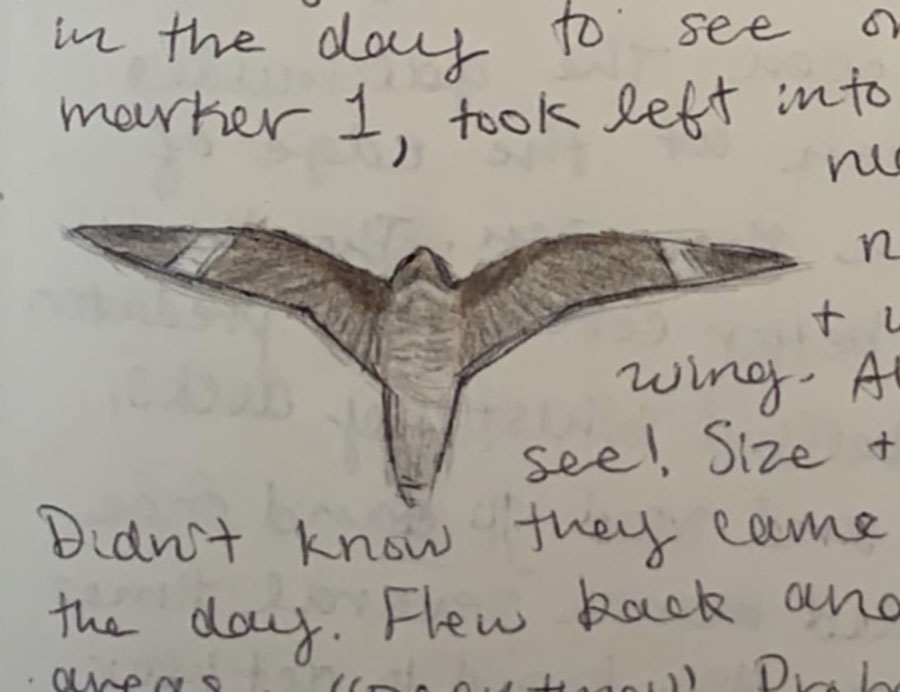 in the day to see
marker 1, took left into
+
wing.
see! Size +
Didn't know they came
the day. Flew back
areas.